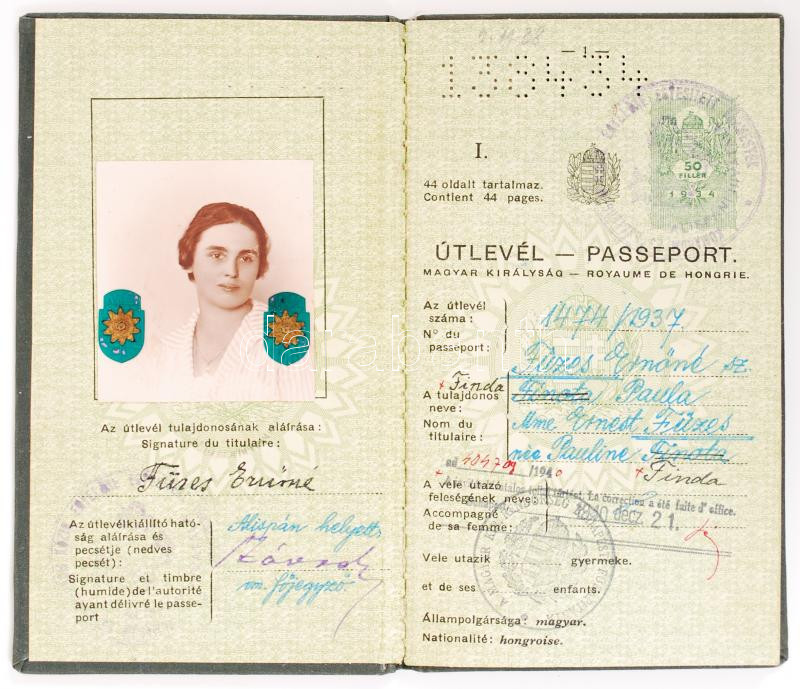 Az útlevél tulajdonosának aláírása:
Signature du titulaire:
Füzes Ernőné
Az útlevélkiállító ható-
ság aláírása és
pecsétje (nedves
pecsét):
Signature et timbre
(humide) de l'autorité
ayant délivré le passe-
port
Alispán helyett
vm. főjegyző
— 1 —
136434
I.
44 oldalt tartalmaz.
Contient 44 pages.
50
FILLÉR
1934
ÚTLEVÉL — PASSEPORT.
MAGYAR KIRÁLYSÁG — ROYAUME DE HONGRIE.
Az útlevél
száma:
N° du
passeport:
1474/1937
Füzes Ernőné sz.
× Finda
A tulajdonos
neve:
Finota Paula
Nom du
titulaire:
Mme Ernest Füzes
née Pauline Finota
× Finda
ad 404709/1940
A vele utazó
feleségének neve:
La correction a été faite d'office.
1940 dec. 21.
Accompagné
de sa femme:
Vele utazik gyermeke.
et de ses enfants.
Állampolgársága: magyar.
Nationalité: hongroise.